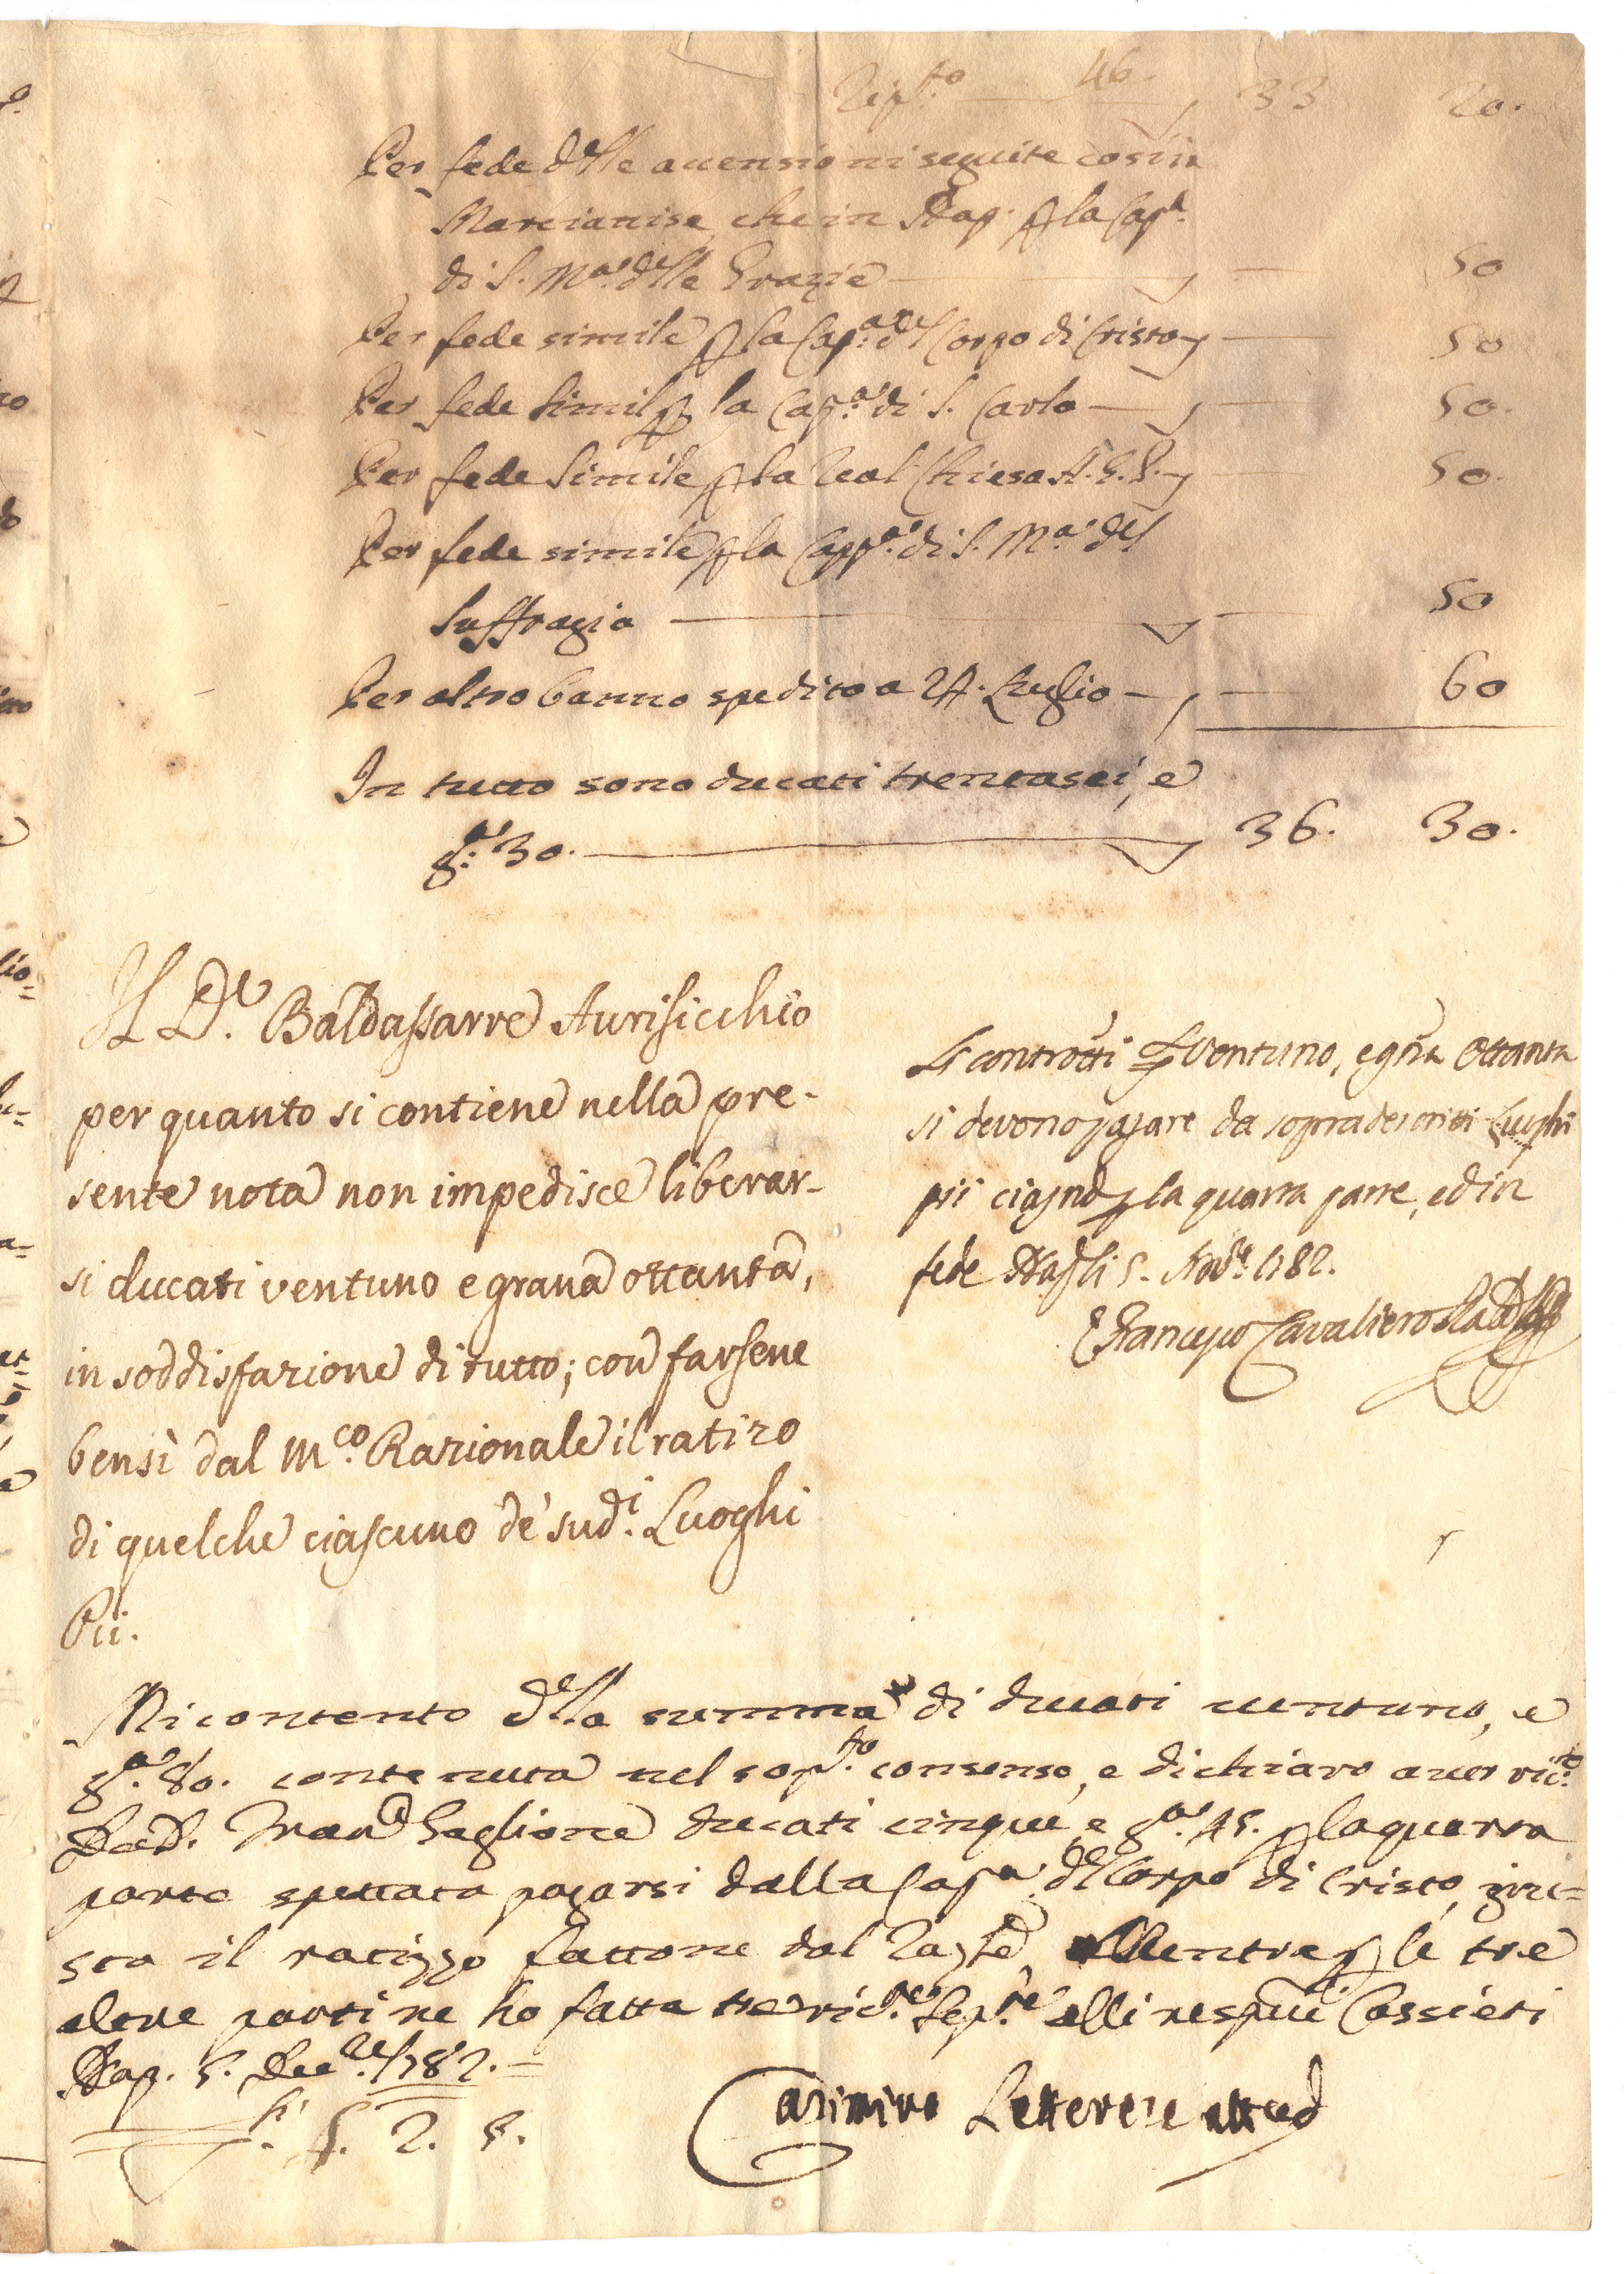 Rip.to 46. 33 20.
Per fede d'lle accensioni seguite così in
Marcianise, che in Nap. p la Cap.a
di S. M.a d'lle Grazie — 50
Per fede simile p la Cap.a del Corpo di Cristo — 50
Per fede simil p la Cap.a di S. Carlo — 50.
Per fede simile p la Real Chiesa A. G. P. — 50.
Per fede simile p la Capp.a di S. M.a del
Suffragio — 50
Per altro banno spedito a 24. Luglio — 60
In tutto sono ducati trentasei, e
g.a 30. — 36. 30.
Il D.r Baldassarre Aurisicchio
per quanto si contiene nella pre-
sente nota non impedisce liberar-
si ducati ventuno e grana ottanta,
in soddisfazione di tutto; con farsene
bensì dal M.co Razionale il ratizo
di quelche ciascuno de' sud.i Luoghi
Pii.
Li controtti ventuno, e gna ottanta
si devono pagare da sopradescritti Luoghi
pii p la quarta parte, ed in
fede Napli 5. Nov.e 1782.
Francesco Cavaliero
Mi contento d'lla summa di ducati ventuno, e
g.a 80. contenuta nel sop.to consenso, e dichiaro aver ric.to
Da D. Saglione ducati cinque, e g.a 45. p la quarta
parte spettata pagarsi dalla Cap.a del Corpo di Cristo, giu=
sta il ratizzo fattone dal, Mentre p le tre
altre parti ne ho fatta tre ric.te sep.te alli respvi Cassieri
Nap. 5. Dec.bre 1782. =
5. 2. 5.
Casimiro Letterese